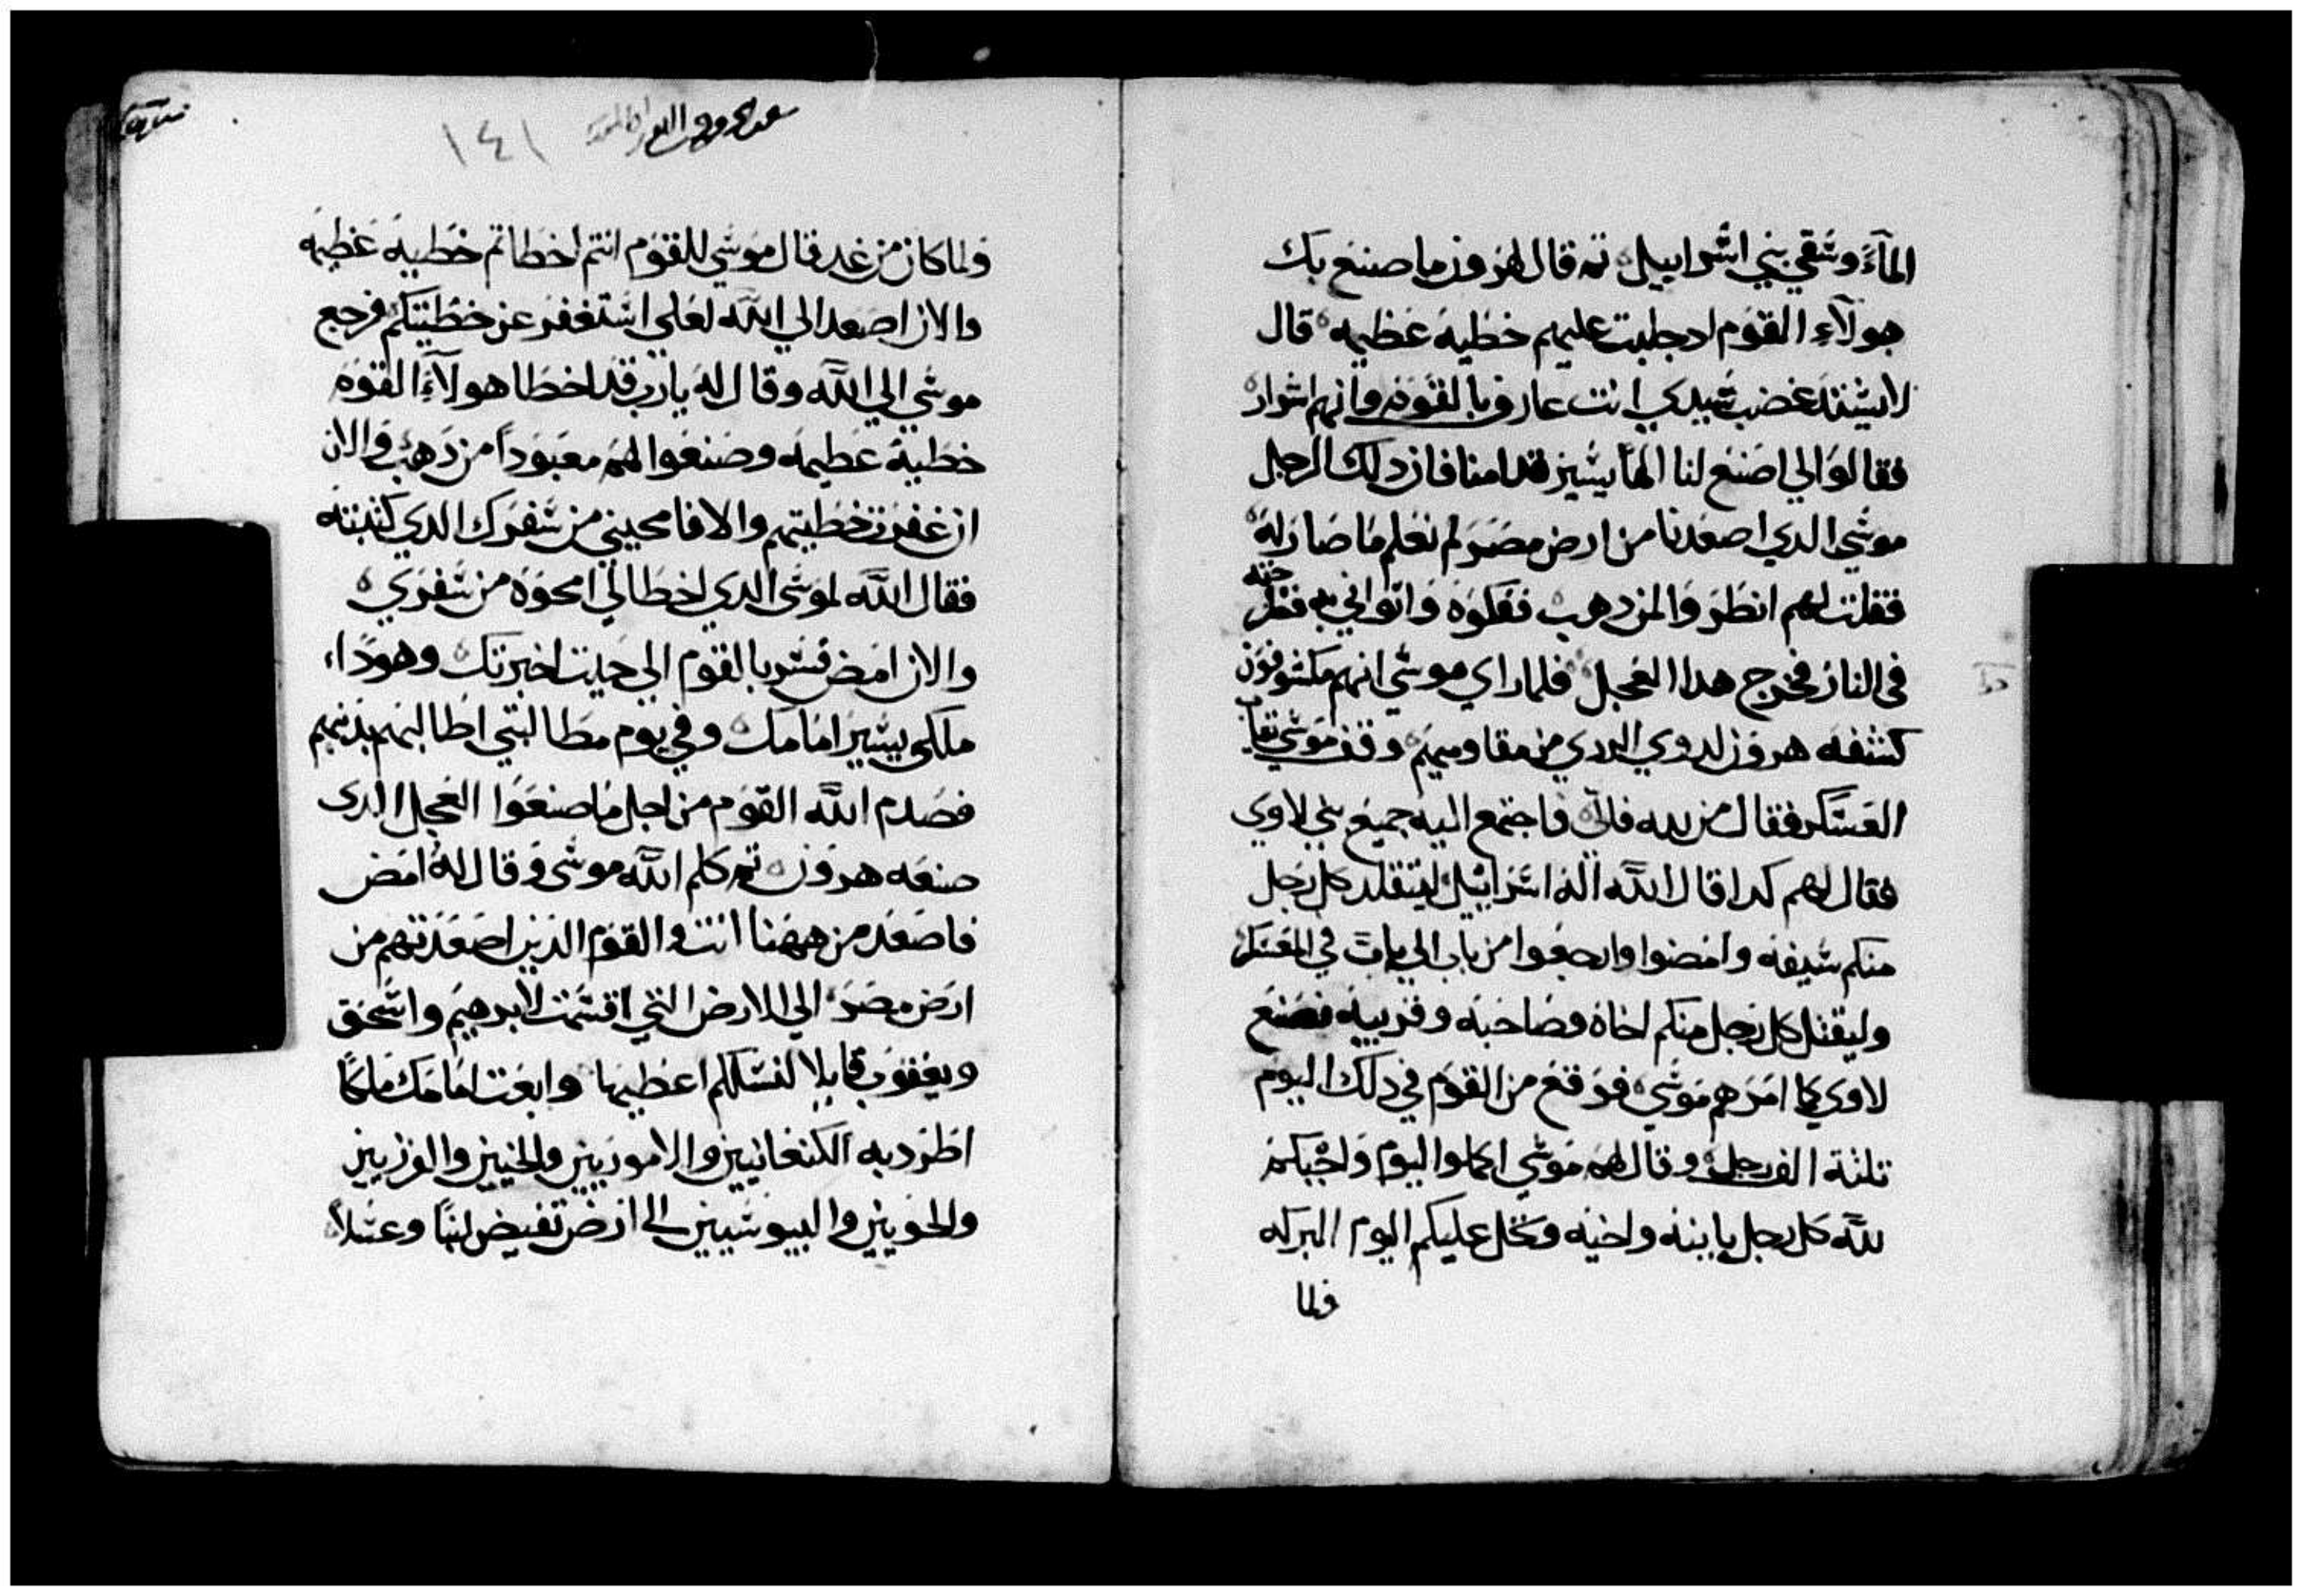 المآء وسقي بني اسراييل ثم قال لهرون ما صنع بك
هولآء القوم اد جلبت عليهم خطية عظيمه قال
لا يشتد غضب سيدي انت عارف بالقوم وانهم اشرار
فقالوا لي اصنع لنا الهاً يسير قدامنا فان دلك الرجل
موسي الدي اصعدنا من ارض مصر لم نعلم ما صار له
فقلت لهم انظروا لمن دهب ففكوه واتواني به فطرحته
في النار فخرج هدا العجل فلما راي موسي انهم مكشوفون
كشفه هرون من مقاوميهم وقف موسي بباب
العسكر فقال من لله فالي فاجتمع اليه جميع بني لاوي
فقال لهم كدا قال الله اله اسراييل ليتقلد كل رجل
منكم سيفه وامضوا وارجعوا من باب الي باب في المعسكر
وليقتل كل رجل منكم اخاه وصاحبه وقريبه فصنع
لاوي كما امرهم موسي فوقع من القوم في دلك اليوم
تلتة الف رجل وقال لهم موسي اكملوا اليوم واجبكم
لله كل رجل بابنه واخيه وتحل عليكم اليوم البركه
فلما
١٤١
ولما كان من غد قال موسي للقوم انتم اخطاتم خطية عظيمه
والان اصعد الي الله لعلي استغفر عن خطيتكم فرجع
موسي الي الله وقال له يارب قد اخطا هولآء القوم
خطية عظيمه وصنعوا لهم معبوداً من دهب والان
ان غفرت خطيتهم والا فامحيني من سفرك الدي كتبته
فقال الله لموسي الدي اخطا لي امحوه من سفري
والان امض فسر بالقوم الي حيت اخبرتك وهودا
ملكي يسير امامك وفي يوم مطالبتي اطالبهم بدنبهم
فصدم الله القوم من اجل ما صنعوا العجل الدي
صنعه هرون ثم كلم الله موسي وقال له امض
فاصعد من ههنا انت والقوم الدين اصعدتهم من
ارض مصر الي الارض التي اقسمت لابرهيم واسحق
ويعقوب قايلا لنسلكم اعطيها وابعت امامك ملكاً
اطرد به الكنعانيين والاموريين والحتيين والفرزيين
والحويين واليبوسيين الي ارض تفيض لبناً وعسلاً